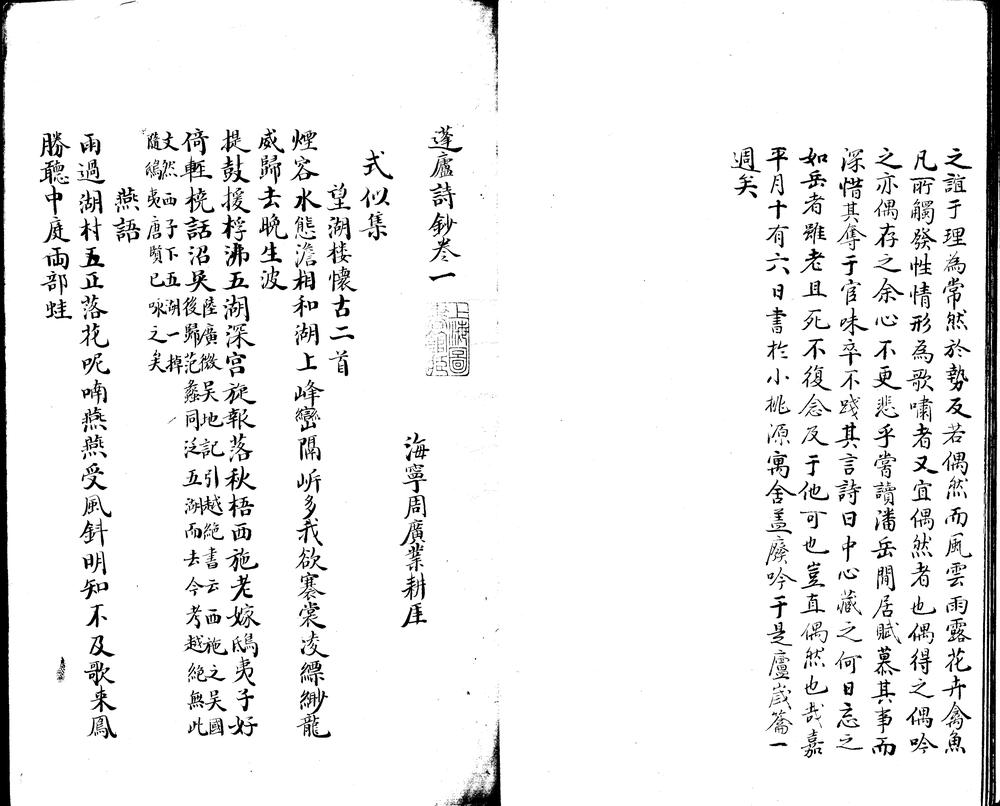 之誼于理為常然於勢反若偶然而風雲雨露花卉禽魚
凡所觸發性情形為歌嘯者又宜偶然者也偶得之偶吟
之亦偶存之余心不更悲乎嘗讀潘岳閒居賦慕其事而
深惜其奪于官味卒不踐其言詩曰中心藏之何日忘之
如岳者雖老且死不復念及于他可也豈直偶然也哉嘉
平月十有六日書於小桃源寓舍盖廢吟于是廬歲籥一
週矣
蓬廬詩鈔卷一
上海圖書館藏
海寧周廣業耕厓
式似集
望湖樓懷古二首
煙容水態澹相和湖上峰巒隔岍多我欲褰裳凌縹緲龍
威歸去晚生波
提鼓援桴沸五湖深宮旋報落秋梧西施老嫁鴟夷子好
倚輕橈話沼吳陸廣微吳地記引越絶書云西施之吳國
後歸范蠡同泛五湖而去今考越絶無此
文然西子下五湖一掉
隨鴟夷唐賢已咏之矣
燕語
雨過湖村五正落花呢喃燕燕受風斜明知不及歌来鳳
勝聽中庭両部蛙